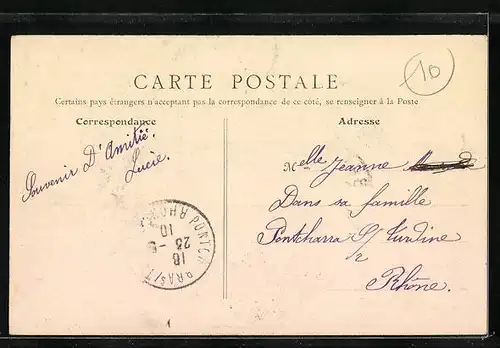 10
CARTE POSTALE
Certains pays étrangers n'acceptant pas la correspondance de ce côté, se renseigner à la Poste
Correspondance
Adresse
Souvenir D'Amitié.
Lucie.
Melle Jeanne
Dans sa famille
Pontcharra S/ Turdine
Rhône.
18
23 -5
10
RHONE